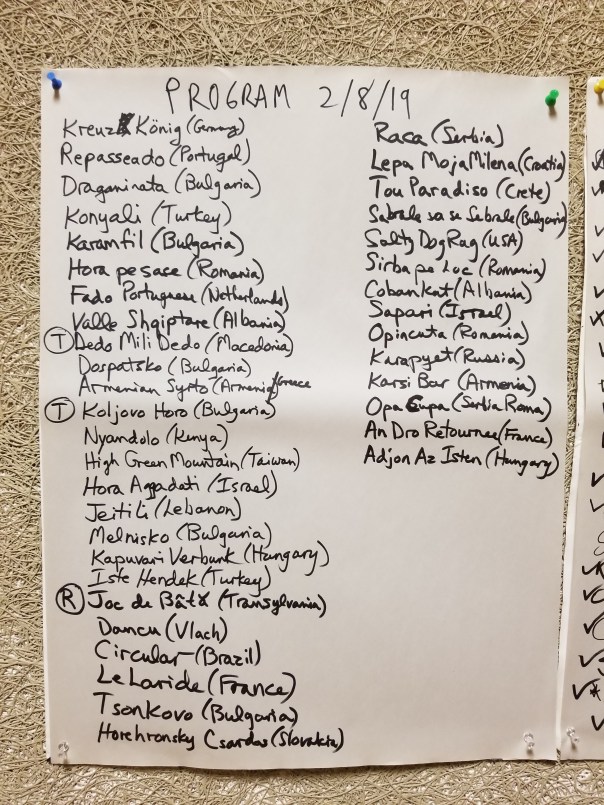 PROGRAM 2/8/19
Kreuz König (Germany)
Repasseado (Portugal)
Draganinata (Bulgaria)
Konyali (Turkey)
Karamfil (Bulgaria)
Hora pe sase (Romania)
Fado Portuguese (Netherlands)
Valle Shqiptare (Albania)
T Dedo Mili Dedo (Macedonia)
Dospatsko (Bulgaria)
Armenian Syrto (Armenia/Greece
T Koljovo Horo (Bulgaria)
Nyandolo (Kenya)
High Green Mountain (Taiwan)
Hora Agadati (Israel)
Jeitili (Lebanon)
Melnisko (Bulgaria)
Kapuvari Verbunk (Hungary)
Iste Hendek (Turkey)
R Joc de Bâtă (Transylvania)
Dancu (Vlach)
Circular (Brazil)
Le Laride (France)
Tsonkovo (Bulgaria)
Horehronsky Csardas (Slovakia)
Raca (Serbia)
Lepa Moja Milena (Croatia)
Tou Paradiso (Crete)
Sabrale sa se Sabrale (Bulgaria)
Salty Dog Rag (USA)
Sirba pe Loc (Romania)
Cobankat (Albania)
Sapari (Israel)
Opincuta (Romania)
Karapyet (Russia)
Karsi Bar (Armenia)
Opa Cupa (Serbia Roma)
An Dro Retournee (France)
Adjon Az Isten (Hungary)